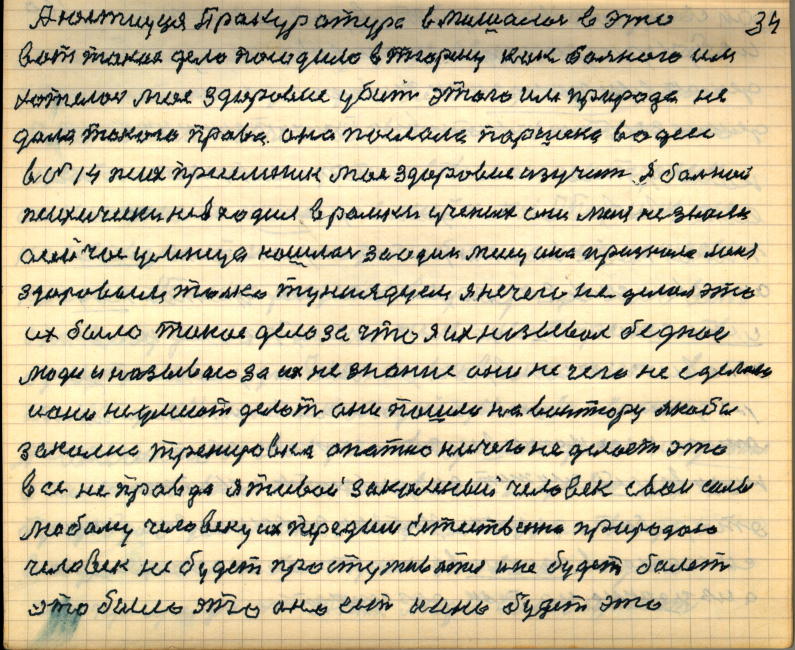 34
Анятицця Пракуратура вмешалася в это
вот такое дело посодила в тюрму как болного им
хотелося мое здоровие убит этого им природа не
дала такого права. она послала паршека водеси
в № 14 псих приемник мое здоровие изучит я болной
психически не входил в рамки ученых они меня не знали
она признала меня
здоровым, толко тунеядцем я нечего не делал это
их было такое дело за что я их называл бедное
люди и называю за их не знание они не чего не сделали
и они не умеют делат они пошли на
закалка тренировка опятко ничего не делает это
все не правда я живой закалный человек свои силы
любому человеку их передам естественно природою
человек не будет простужыватся и не будет болет
это было это оно ест и оно будет это